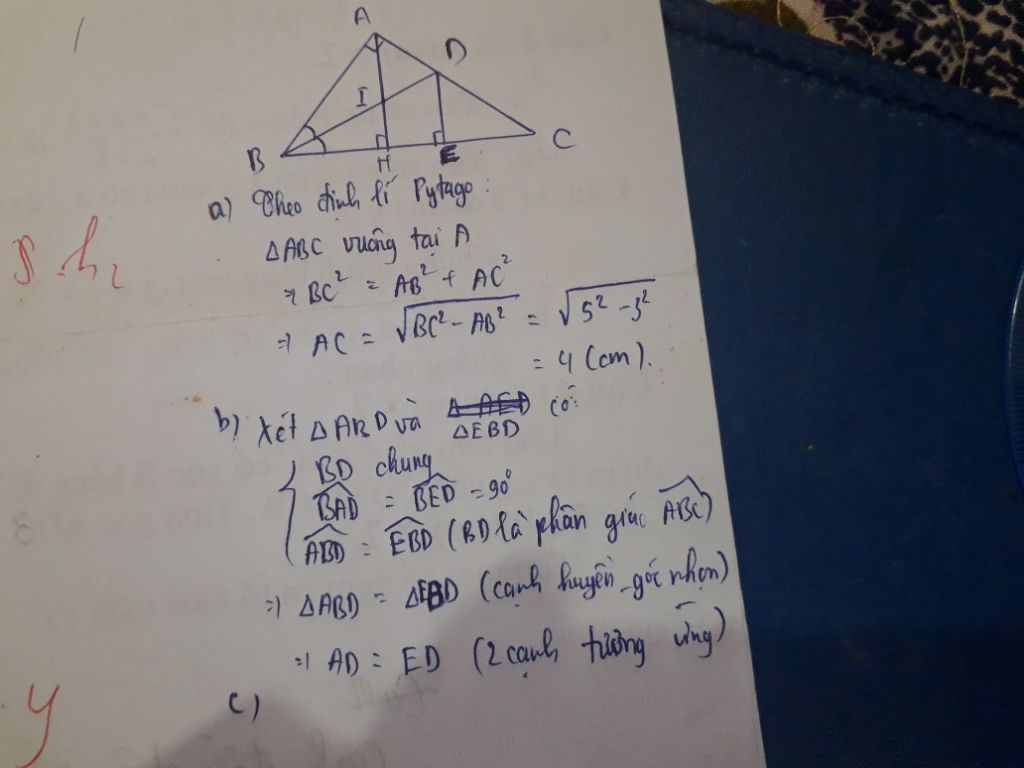 A
D
I
B
H
E
C
a) Theo định lí Pytago:
△ABC vuông tại A
⇒ BC² = AB² + AC²
⇒ AC = √(BC² - AB²) = √(5² - 3²)
= 4 (cm).
b) Xét △ABD và △AED có:
△EBD
BD chung
BAD = BED = 90°
ABD = EBD (BD là phân giác ABC)
⇒ △ABD = △EBD (cạnh huyền - góc nhọn)
⇒ AD = ED (2 cạnh tương ứng)
c)